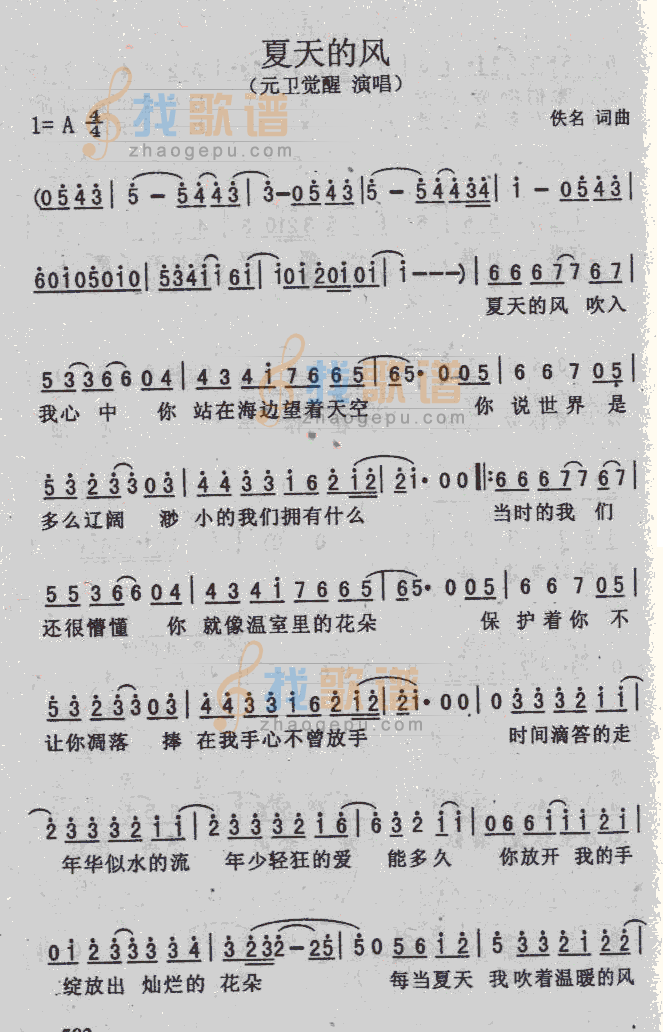 夏天的风
(元卫觉醒 演唱)
1= A 4/4
佚名 词曲
找歌谱
zhaogepu.com
(0543|5－5443|3－0543|5－54434|1－0543|
60105010|5341161|10120101|1－－－)|6667767|
夏天的风 吹入
5336604|43417665|65·005|66705|
我心 中 你 站在海边望着天空 你 说世界 是
找歌谱
zhaogepu.com
5323303|443316212|21·00|:6667767|
多么辽阔 渺 小的我们拥有什么 当时的我 们
5536604|43417665|65·005|66705|
还很懵懂 你 就像温室里的花朵 保 护着你 不
找歌谱
zhaogepu.com
5323303|443316212|21·00|0333211|
让你凋落 捧 在我手心不曾放手 时间滴答的走
2333211|2333216|63211|06611121|
年华似水的流 年少轻狂的爱 能多久 你放开 我的手
01233334|3232－25|505612|5332122|
绽放出 灿烂的 花朵 每当夏天 我吹着温暖的风